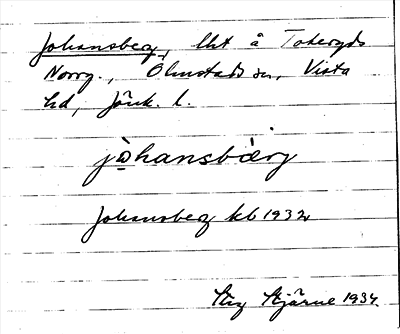 Johansberg, lht å Tokeryds
Norrg., Ölmstads sn, Vista
hd, Jönk. l.
jòhansbærj
Johansberg kb 1932
Stig Stjärne 1934